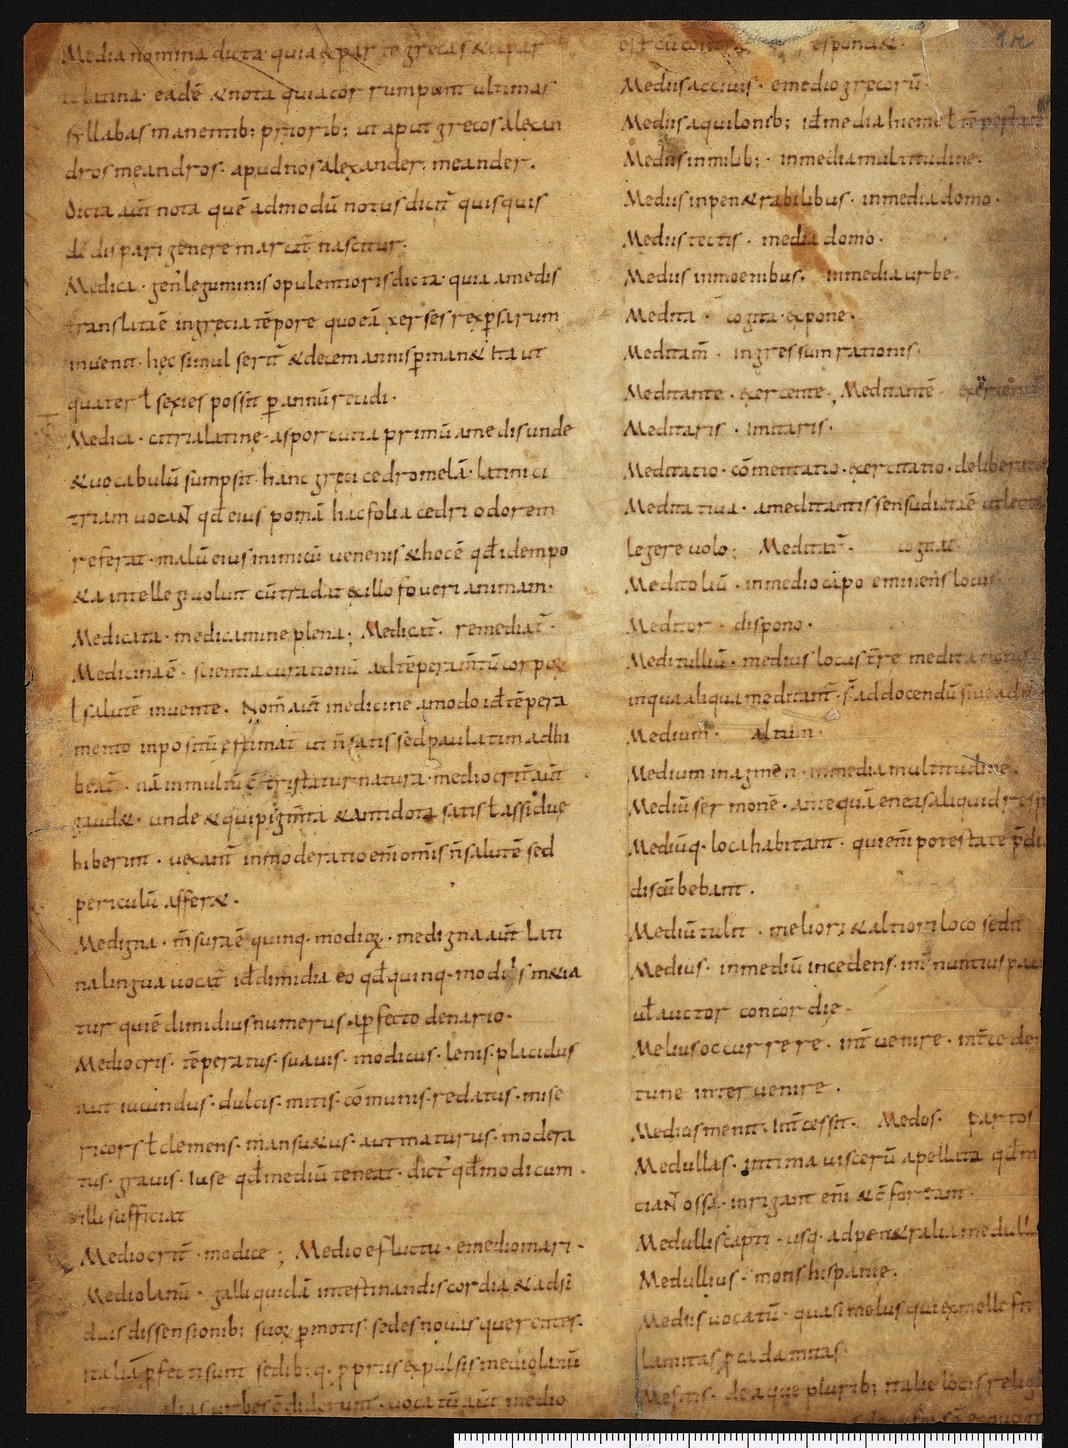 Media nomina dicta quia & parte grecas & ex par
te latina · eadē & nota quia corrumpunt ultimas
syllabas manentib; priorib; ut aput grecos alexan
dros meandros · apud nos alexander · meander ·
Dicta aūt nota quē admodū notus dicit̄ quisquis
de dispari genere marcit̄ nascitur ·
Medica · gen̄ leguminis opulentioris dicta · quia a medis
translatā ē in grecia tēpore quo eā xerses rex p̄sarum
inuenit · hęc simul serit̄ & decem annis p̄man& ita ut
quater ł sexies possit p annū recidi ·
Medica · citria latine · asportata primū a medis unde
& uocabulū sumpsit · hanc greci cedromelā · latini ci
triam uocaɴ̄ qđ eius pomū hac folia cedri odorem
referat · malū eius inimicū uenenis & hoc ē qđ idem po
&a intellegi uoluit cū tradat ex illo foueri animam ·
Medicata · medicamine plena ; Medicat̄ · remediat̄ ·
Medicina ē · scientia curationū ad tēperam̄tū corpoꝝ
ł salutē inuente · Nom̄ aūt medicine a modo id tēpera
mento inpositū ęstimat̄ ut n̄ satis sed paulatim adhi
beat̄ · nā in multū cōtristatur natura · mediocrit̄ aūt
gaud& · unde & qui pigm̄ta & antidota satis ł assidue
biberint · uexant̄ inmoderatio em̄ omīs n̄ salutē sed
periculū affer& ·
Medigna · m̄sura ē quinq · modioꝝ · medigna aūt lati
na lingua uocat̄ id dimidia eo qđ quinq · modiis metia
tur qui ē dimidius numerus a p̄fecto denario ·
Mediocris · tēperatus · suauis · modicus · lenis · placidus
aut iucundus · dulcis · mitis · cōmunis · redatus · mise
ricors ł clemens · mansu&us · aut maturus · modera
tus · grauis · Iuse qđ mediū teneat · dict̄ qđ modicum ·
illi sufficiat
Mediocrit̄ · modice ; Medio e fluctu · e medio mari ·
Mediolanū · galli quidā intestina discordia & adsi
duis dissensionib; suoꝝ p̄moti · sedes nouas querentes ·
italiā p̄fecti sunt sedib; q · p̄prus expulsis mediolanū
alias urbes cōdiderunt · uocatū aūt medio
est cū respond& ·
Mediis acciuis · e medio grecorū ·
Mediis aquilonib; id media hieme ł tēpestate
Mediis in milib; · in media multitudine ·
Mediis in pen&rabilibus · in media domo ·
Mediis tectis · media domo ·
Mediis in moenibus · in media urbe ·
Medita · cogita · expone ·
Meditam̄ · ingressum rationis ·
Meditante · exercente ; Meditantē · exercentē
Meditaris · Imitaris ·
Meditatio · cōmentatio · exercitatio · deliberatio
Meditatiua · a meditantis sensu dicta ē ut lecturio
legere uolo ; Meditat̄ · cogitat ·
Meditoliū · in medio cāpo eminens locus
Meditor · dispono ·
Meditulliū · medius locus t̄re meditationis
in qua aliqua meditant̄ · s̄ ad docendū siue ad
Medium · altum ·
Medium in agmen · in media multitudine ·
Mediū sermonē · ante quā eneas aliquid resp
Mediūq · loca habitant · qui em̄ potestate p̄di
discūbebant ·
Mediū tulit · meliori & altiori loco sedit
Medius · in mediū incedens · nuntius pacis
uł auctor concordie ·
Melius occurrere · int̄uenire · int̄cede
tune interuenire ·
Medias menit · Int̄cessit · Medos · partos
Medullas · intima uiscerū apellita qđ m
ciaɴ̄ ossa · inrigant em̄ & cōfortant ·
Medullis capti · usq · ad pen&ralia medull
Medullius · mons hispanie ·
Medus uocatū · quasi melus qui ex molle fr
lamitas p̄ cadamitas ·
Mefitis · dea que plurib; italie locis relig